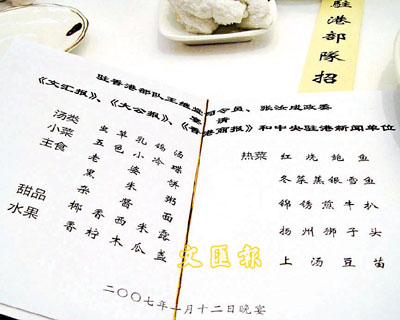 駐港部隊招
驻香港部队王继堂司令员、张汝成政委
宴请
《文汇报》、《大公报》、《香港商报》和中央驻港新闻单位
汤类 虫草乳鸽汤
小菜 五色小冷碟
主食 老婆饼
黑米粥
杂酱面
甜品 椰香西米露
水果 香柠木瓜盏
热菜 红烧鲍鱼
冬菜蒸银雪鱼
锦锈煎牛扒
扬州狮子头
上汤豆苗
文匯報
二〇〇七年一月十二日晚宴